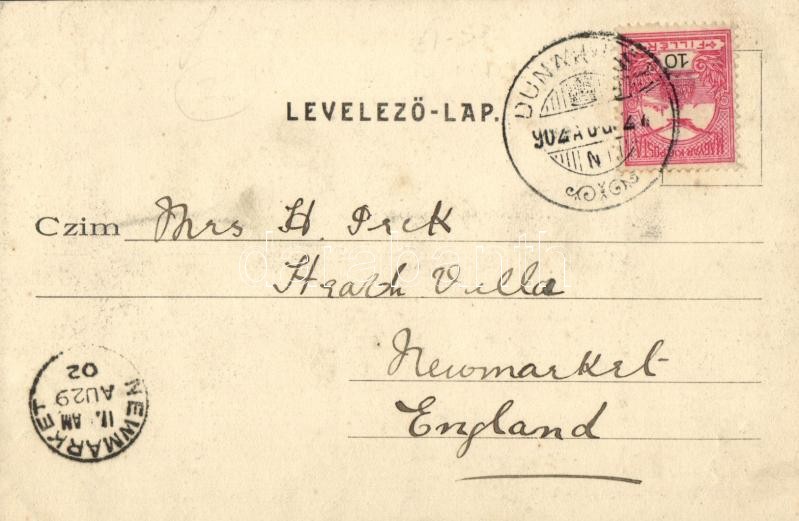 LEVELEZŐ-LAP.
10
FILLÉR
MAGYAR KIR. POSTA
Czim Mrs H. Peck
Heath Villa
Newmarket
England
NEWMARKET
11. AM
AU 29
02
darabanth